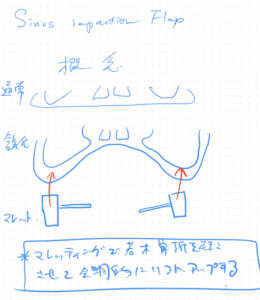 Sinus impaction Flap
概念
通常
マレット
*マレッティングで若木骨折を起こ
させて全明的にリフトアップする